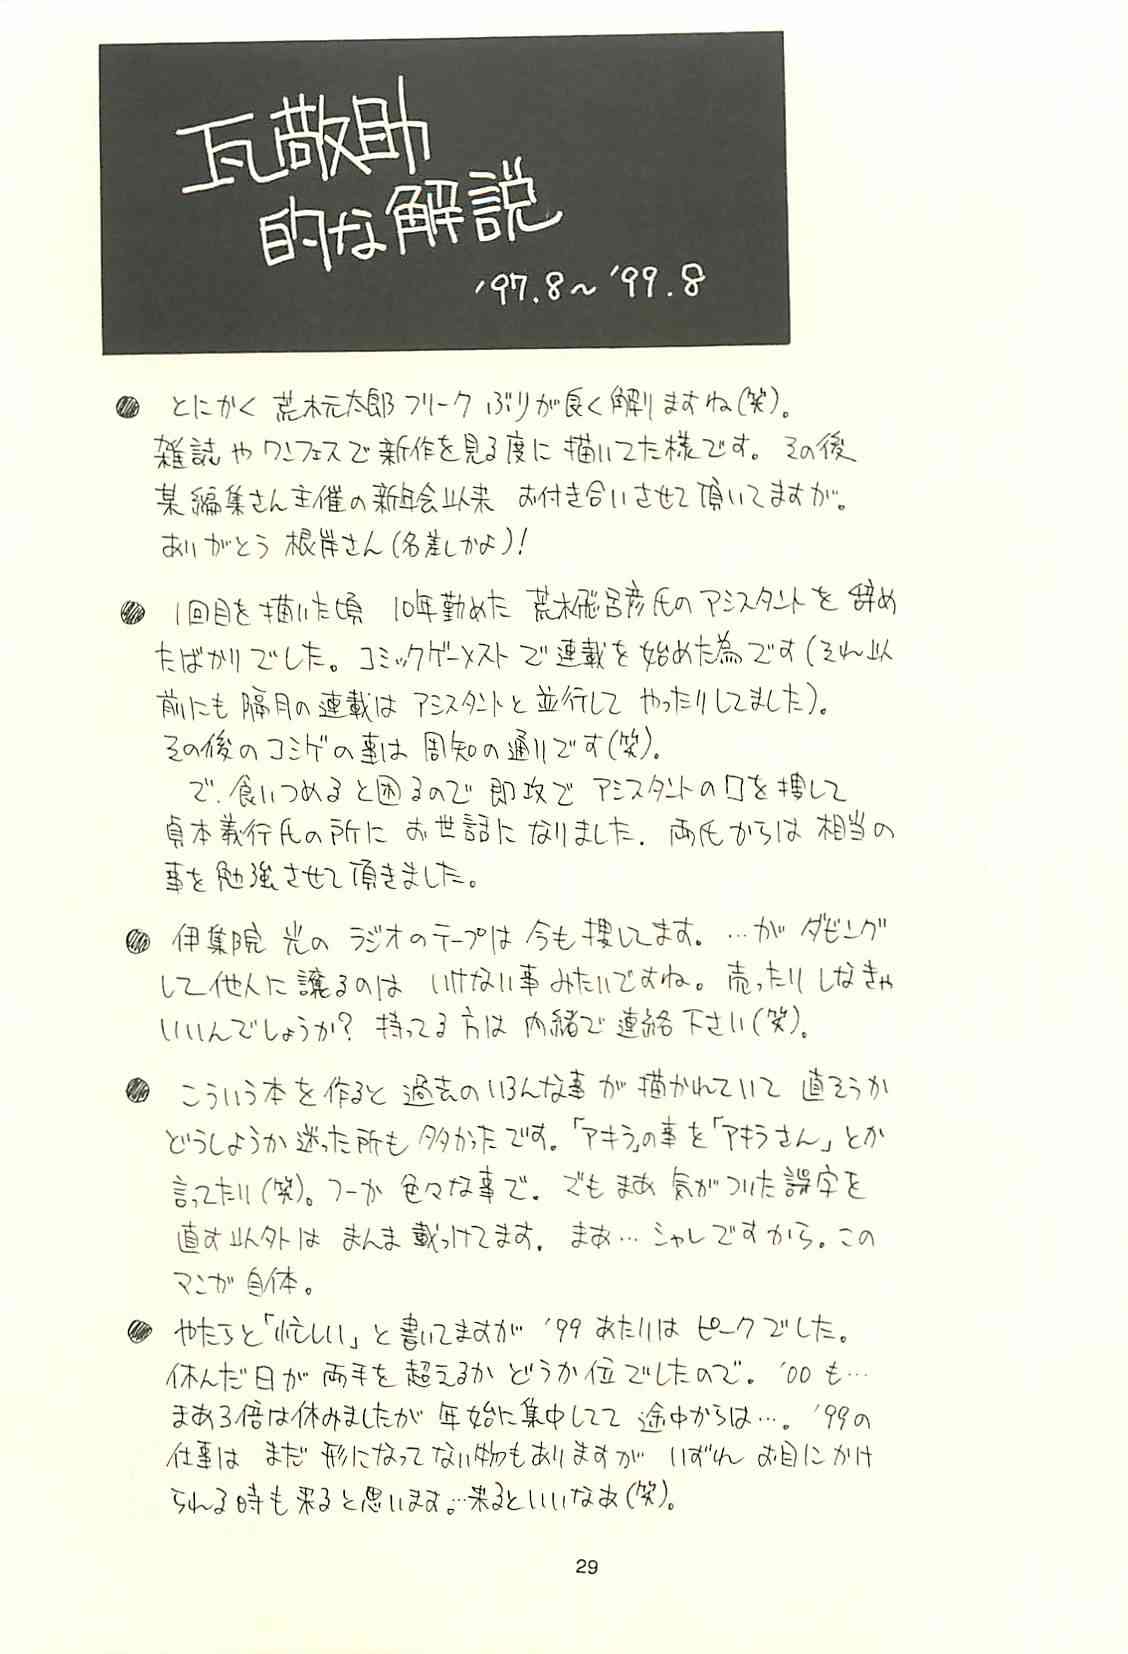 瓦敬助
的な解説
'97.8～'99.8
● とにかく 荒木元太郎フリーク ぶりが良く解りますね(笑)。
雑誌やワンフェスで新作を見る度に 描いてた様です。その後
某編集さん主催の新年会以来 お付き合いさせて頂いてますが。
ありがとう 根岸さん(名差しかよ)!
● 1回目を描いた頃 10年勤めた 荒木飛呂彦氏のアシスタントを 辞め
たばかりでした。コミックゲーメストで連載を始めた為です(それ以
前にも 隔月の連載は アシスタントと並行して やったりしてました)。
その後のコミゲの事は 周知の通りです(笑)。
で、食いつめると困るので 即攻で アシスタントの口を捜して
貞本義行氏の所に お世話になりました. 両氏からは 相当の
事を勉強させて頂きました。
● 伊集院 光の ラジオのテープは今も捜してます。…が ダビング
して他人に譲るのは いけない事みたいですね。売ったりしなきゃ
いいんでしょうか? 持ってる方は 内緒で 連絡下さい(笑)。
● こういう本を作ると 過去のいろんな事が 描かれていて 直そうか
どうしようか迷った所も 多かったです。「アキラ」の事を「アキラさん」とか
言ってたり(笑)。つーか 色々な事で. でもまあ 気がついた誤字を
直す以外は まんま載っけてます. まあ…シャレですから。この
マンガ自体。
● やたらと「忙しい」と書いてますが '99あたりは ピークでした。
休んだ日が 両手を超えるか どうか位でしたので。'00も…
まあ3倍は休みましたが 年始に集中してて 途中からは…。'99の
仕事は まだ 形になってない物もありますが いずれ お目にかけ
られる時も来ると思います。…来るといいなあ(笑)。
29